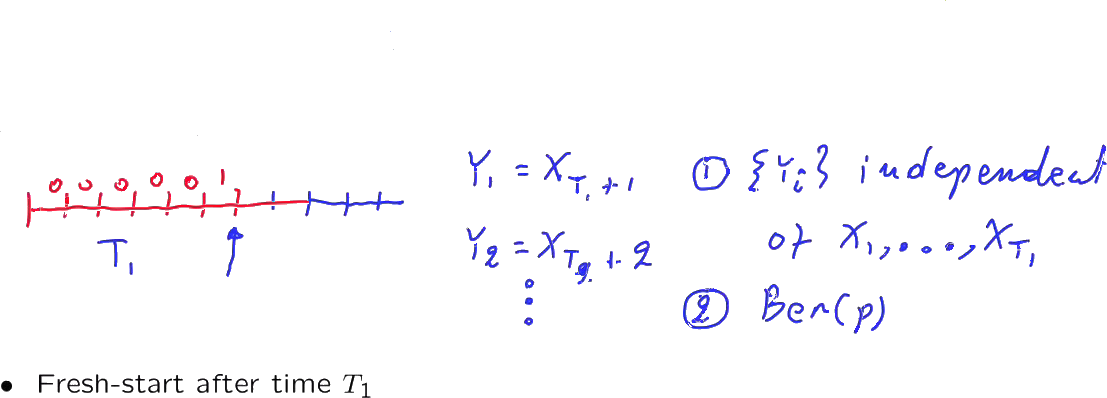 0 0 0 0 0 1
T₁
Y₁ = X_{T₁+1}
Y₂ = X_{T₂+2}
⋮
① {Yᵢ} independent
of X₁,...,X_{T₁}
② Ber(p)
• Fresh-start after time T₁